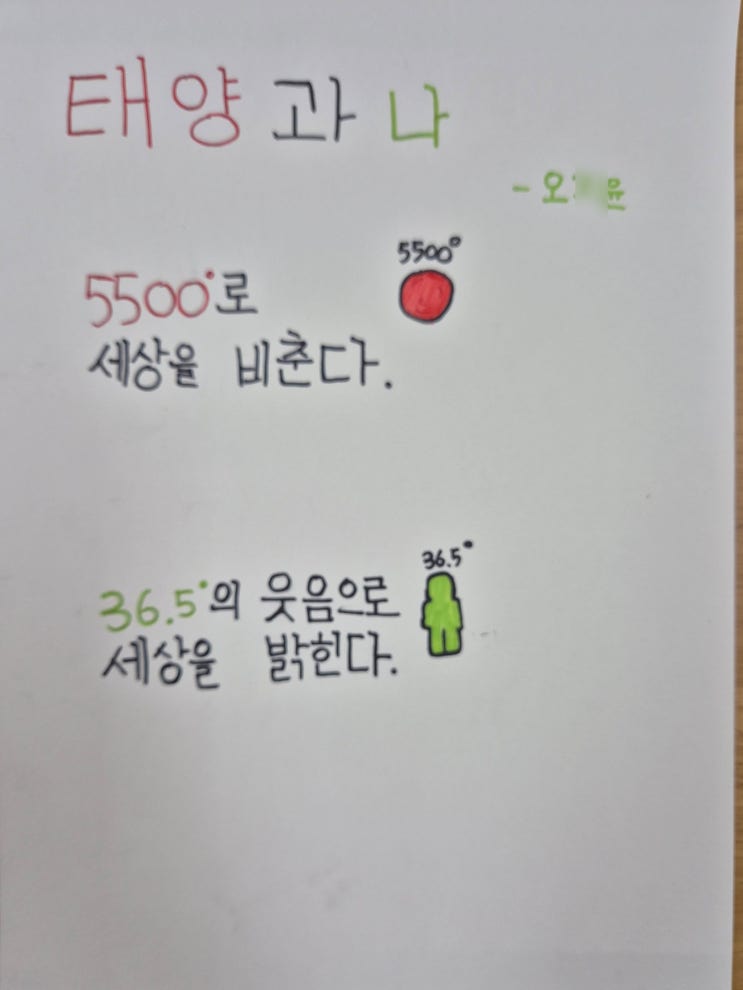 태양과 나
- 오
5500°
5500°로
세상을 비춘다.
36.5°
36.5°의 웃음으로
세상을 밝힌다.